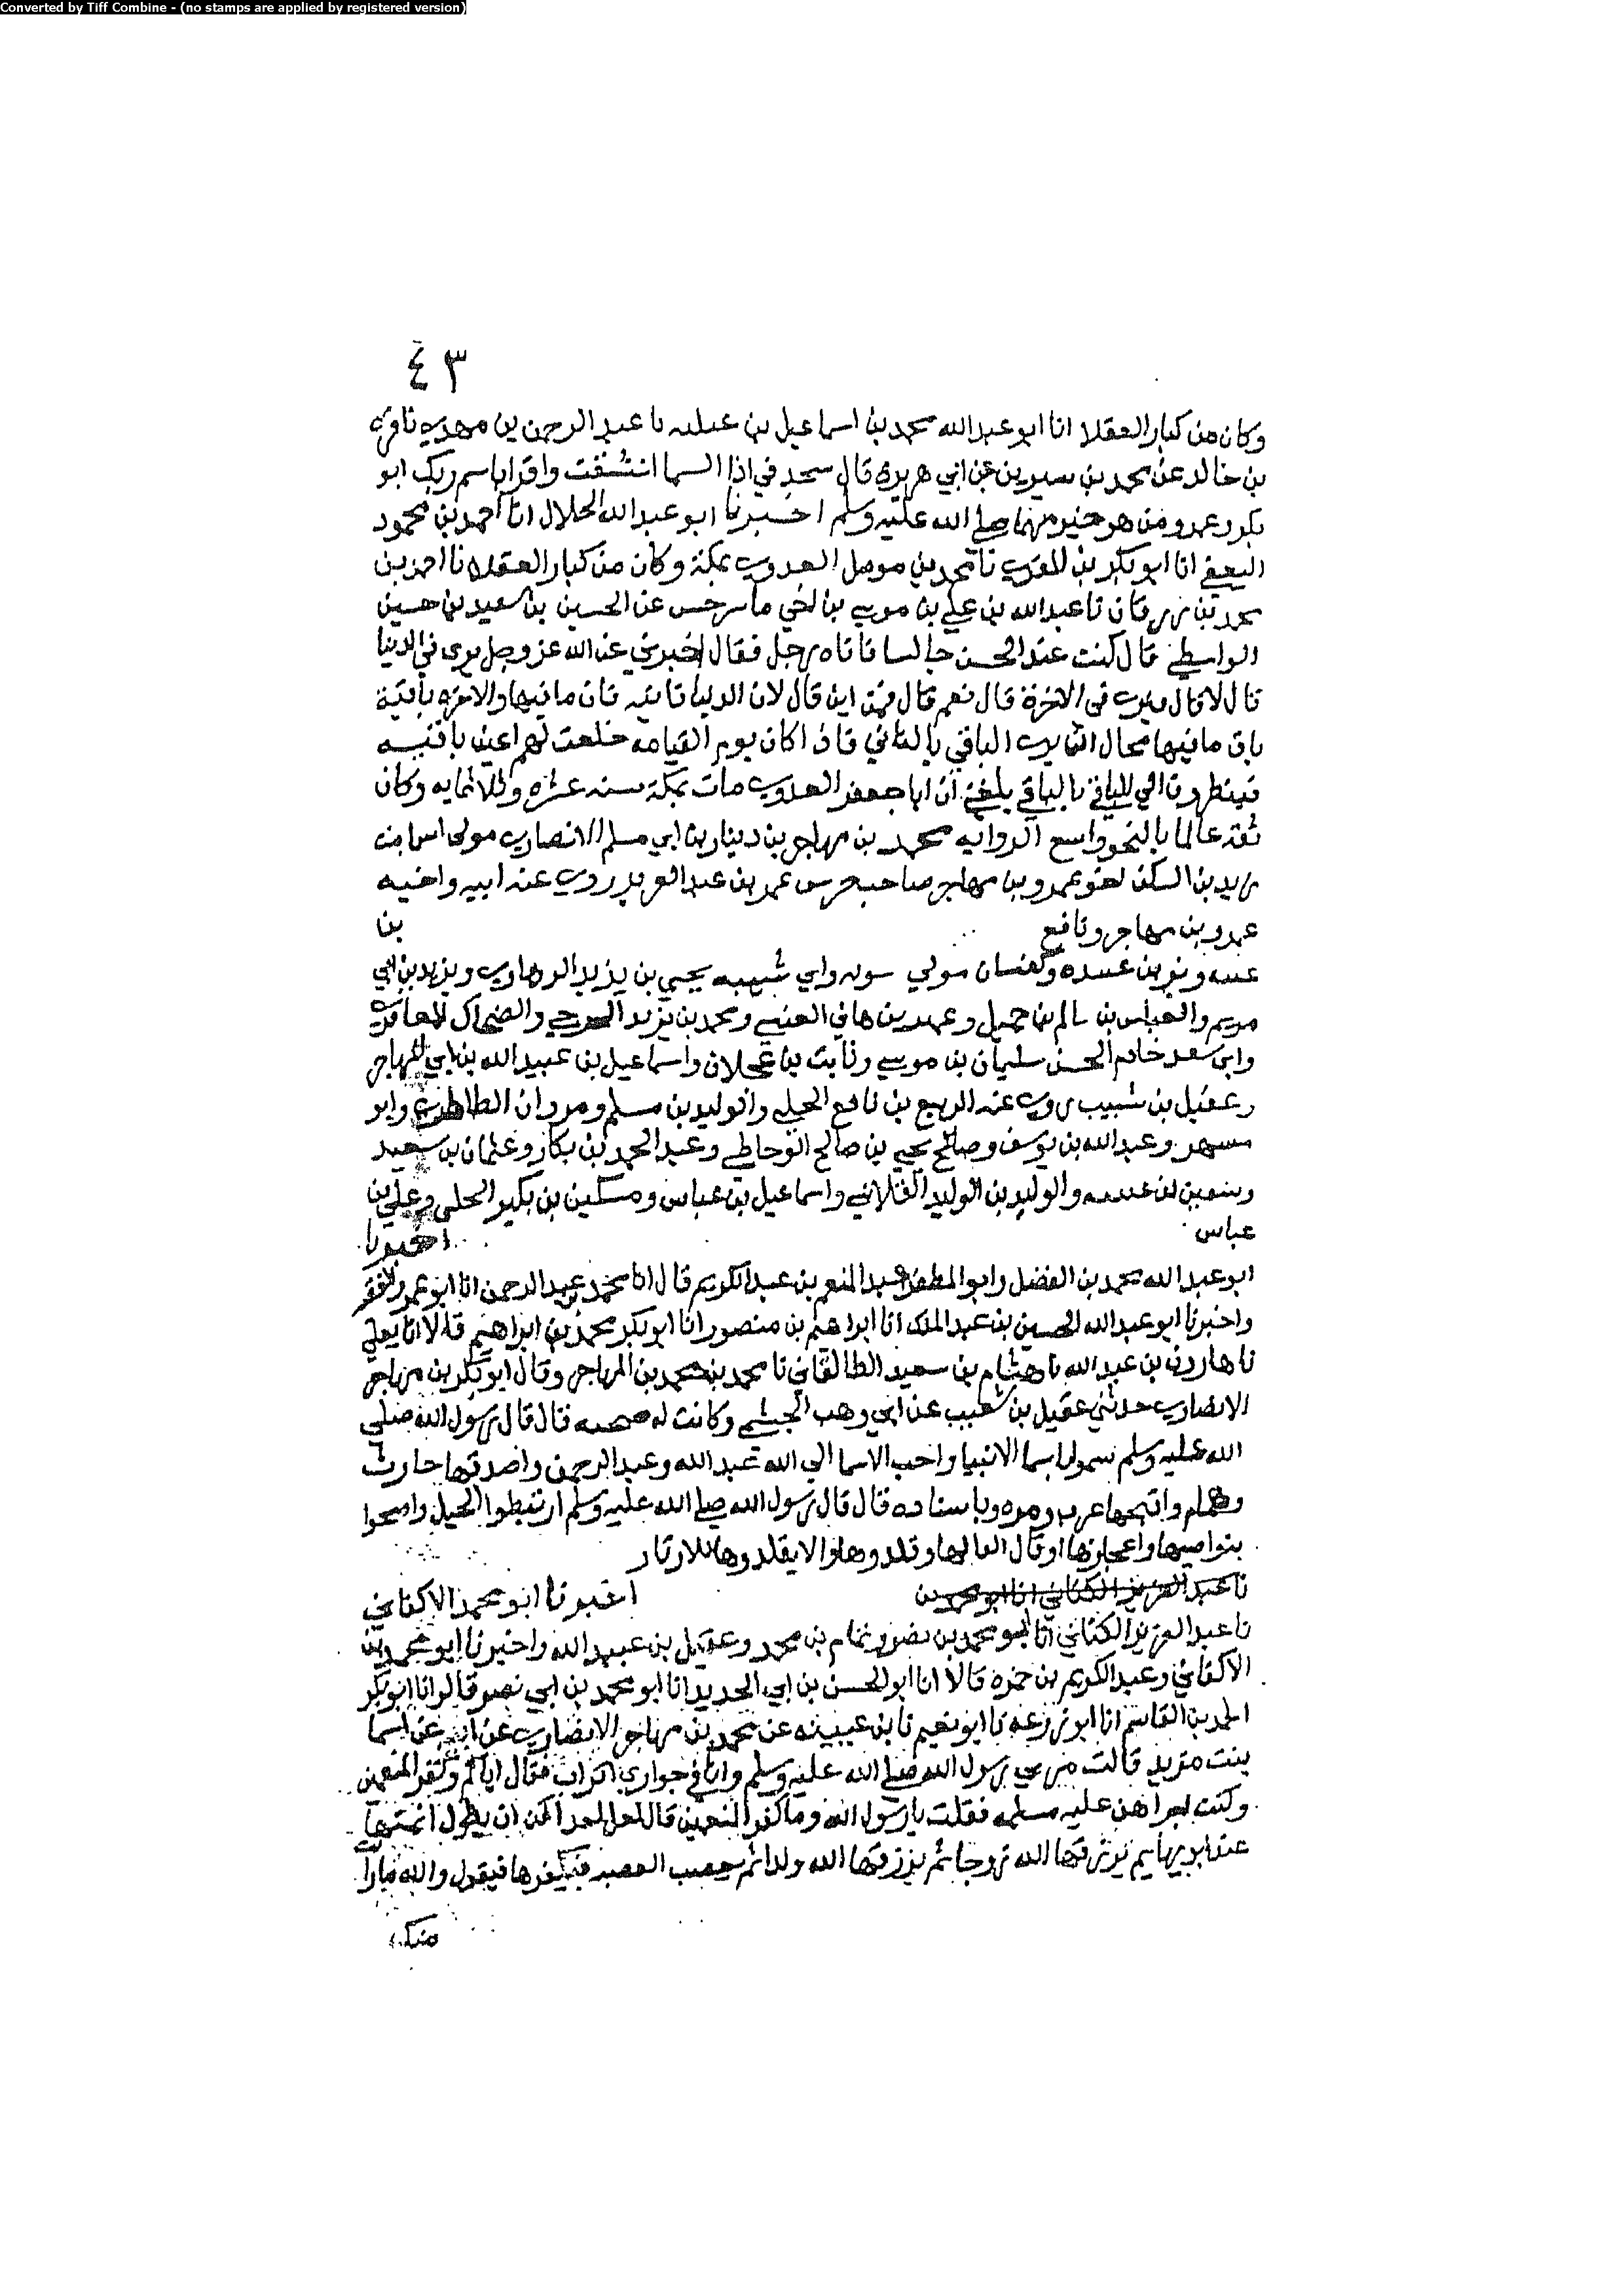 Converted by Tiff Combine - (no stamps are applied by registered version)
٤٣
وكان من كبار العقلا انا ابو عبد الله محمد بن اسماعيل بن نا عبد الرحمن بن مهدي نا قره
بن خالد عن محمد بن سيرين عن ابي هريرة قال سجد في اذا السما انشقت واقرا باسم ربك ابو
بكر وعمر ومن هو خير منهما صلى الله عليه وسلم اخبرنا ابو عبد الله الخلال انا احمد بن محمود
الثقفي انا ابو بكر بن المقري نا محمد بن مومل العدوي بمكة وكان من كبار العقلا نا احمد بن
محمد بن نا عبد الله بن علي بن موسي بن اخي ماسرجس عن الحسين بن سعيد بن حسين
الواسطي قال كنت عند الحسن جالسا فاتاه رجل فقال اخبرني عن الله عز وجل يرى في الدنيا
قال لا قال فيرى في الاخرة قال نعم قال فمن اين قال لان الدنيا فانيه فان ما فيها والاخره باقية
باق ما فيها محال ان يرى الباقي بالفاني فاذا كان يوم القيامه خلقت لهم اعين باقيه
فينظرون الي الباقي بالباقي بلغني ان ابا جعفر العدوي مات بمكة سنه عشره وثلاثمايه وكان
ثقه عالما بالنحو واسع الروايه محمد بن مهاجر بن دينار بن ابي مسلم الانصاري مولى اسما بنت
يزيد بن السكن اخو عمرو بن مهاجر صاحب حرس عمر بن عبد العزيز روى عنه ابيه واخيه
عمرو بن مهاجر ونافع بن
وكيسان مولي وابي شيبه يحيى بن يزيد الرهاوي ويزيد بن ابي
مريم والعباس بن سالم بن جميل وعمير بن هاني العنسي ومحمد بن يزيد الرحبي والضحاك المعافري
وابي سعد خادم الحسن سليمان بن موسي وثابت بن عجلان واسماعيل بن عبيد الله بن ابي المهاجر
وعقيل بن شبيب روى عنه الربيع بن نافع الحلبي والوليد بن مسلم ومروان الطاطري وابو
مسهر وعبد الله بن يوسف وصالح يحيى بن صالح الوحاظي وعبد الحميد بن بكار وعثمان بن سعيد
والوليد بن الوليد القلانسي واسماعيل بن عباس ومسكين بن بكير الحلبي وعلي بن
عباس اخبرنا
ابو عبد الله محمد بن الفضل وابو المظفر عبد المنعم بن عبد الكريم قال انا محمد بن عبد الرحمن انا ابو عمرو الفقيه
واخبرنا ابو عبد الله الحسين بن عبد الملك انا ابراهيم بن منصور انا ابو بكر محمد بن ابراهيم قالا انا ابو يعلي
نا هارون بن عبد الله نا هشام بن سعيد الطالقاني نا محمد بن محمد بن المهاجر وقال ابو بكر بن مهاجر
الانصاري حدثني عقيل بن شعيب عن ابي وهب الجشمي وكانت له صحبه قال قال رسول الله صلى
الله عليه وسلم تسموا باسما الانبيا واحب الاسما الي الله عبد الله وعبد الرحمن واصدقها حارث
وهمام واقبحها حرب ومره وباسناده قال قال رسول الله صلى الله عليه وسلم ارتبطوا الخيل وامسحوا
بنواصيها واعجازها او قال اكفالها وقلدوها ولا تقلدوها الاوتار
نا عبد العزيز الكتاني انا ابو محمد بن اخبرنا ابو محمد الاكفاني
نا عبد العزيز الكتاني انا ابو محمد بن نصر وتمام بن محمد وعقيل بن عبيد الله واخبرنا ابو محمد بن
الاكفاني وعبد الكريم بن حمزه قالا انا ابو الحسن بن ابي الحديد انا ابو محمد بن ابي نصر قالوا انا ابو بكر
احمد بن القاسم انا ابو زرعه نا ابو نعيم نا بن عيينه عن محمد بن مهاجر الانصاري عن ابيه عن اسما
بنت يزيد قالت مر بي رسول الله صلى الله عليه وسلم وانا في جواري اتراب فقال اياكم وكفر المنعمين
وكنت من اجراهن عليه مسلمه فقلت يا رسول الله وما كفر المنعمين قال لعل احداكن ان يطول ايمتها
عند ابويها ثم يرزقها الله زوجا ثم يرزقها الله ولدا ثم تغضب الغضبه فتكفرها فيقول والله ما رايت
منك